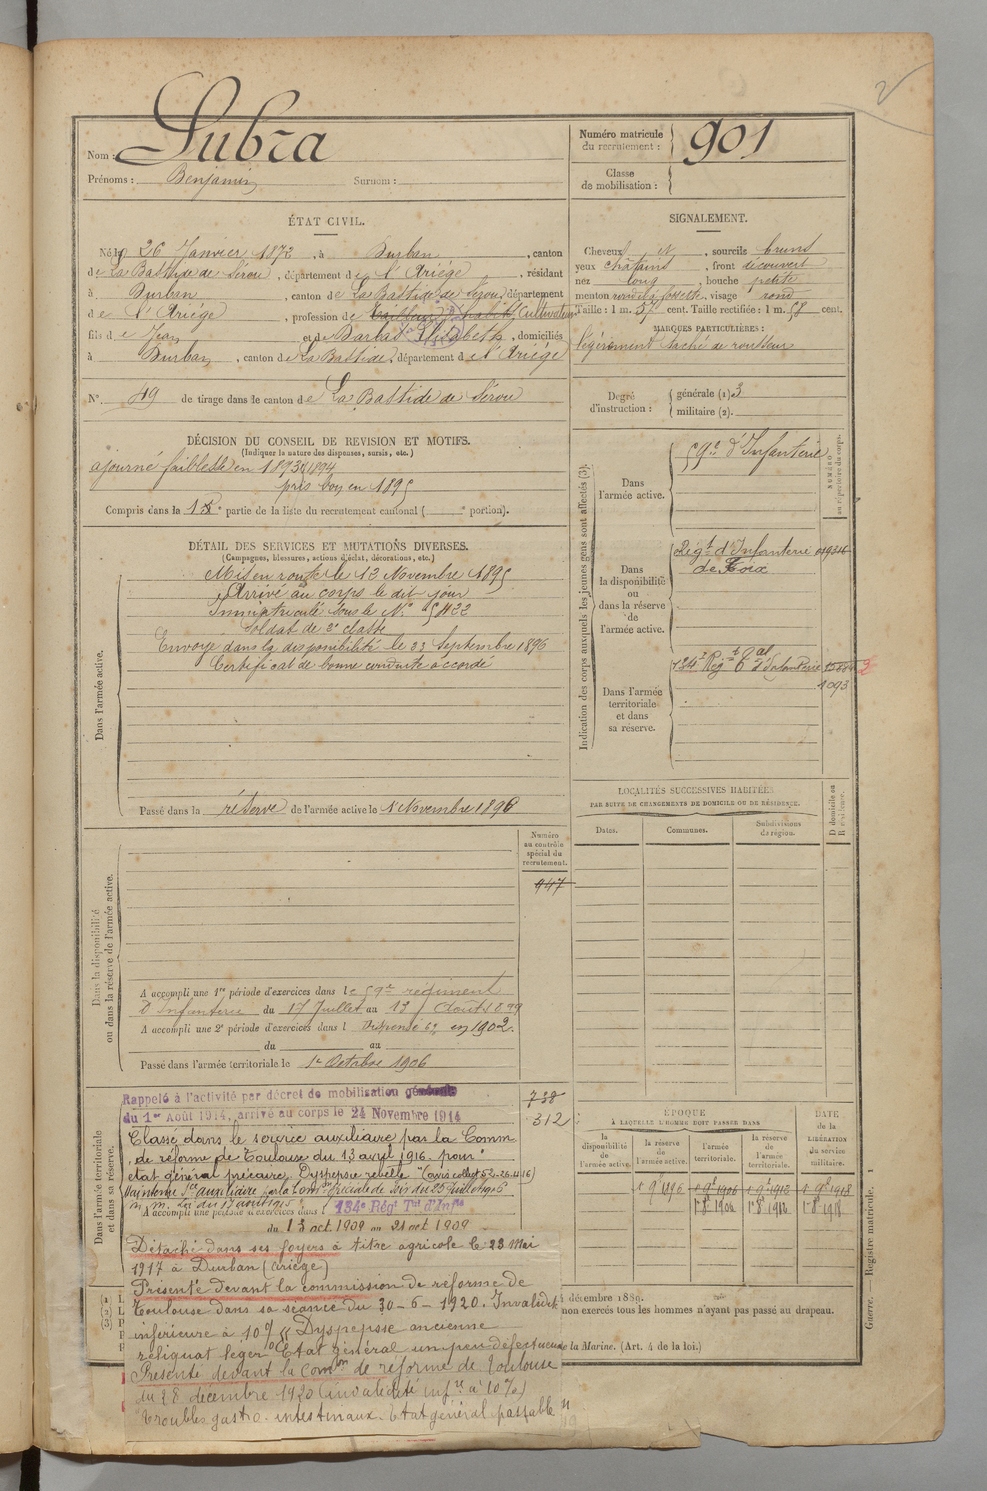 2
Nom : Subra
Prénoms : Benjamin Surnom :
Numéro matricule du recrutement : 901
Classe de mobilisation :
ÉTAT CIVIL.
Né le 26 Janvier 1872, à Durban, canton
de La Bastide de Sérou, département de l'Ariége, résidant
à Durban, canton de La Bastide de Sérou, département
de l'Ariége, profession de Cultivateur
fils de Jean et de Barbat Elisabeth, domiciliés
à Durban, canton de La Bastide, département de l'Ariége
N° 49 de tirage dans le canton de La Bastide de Sérou
SIGNALEMENT.
Cheveux et, sourcils bruns
yeux châtains, front découvert
nez long, bouche petite
menton rond à fossette, visage rond
Taille : 1 m. 57 cent. Taille rectifiée : 1 m. 58 cent.
MARQUES PARTICULIÈRES :
légèrement taché de rousseur
Degré d'instruction : générale (1) 3
militaire (2).
DÉCISION DU CONSEIL DE REVISION ET MOTIFS.
(Indiquer la nature des dispenses, sursis, etc.)
ajourné faiblesse en 1893, 1894
pris bon en 1895
Compris dans la 1e partie de la liste du recrutement cantonal ( e portion).
DÉTAIL DES SERVICES ET MUTATIONS DIVERSES.
(Campagnes, blessures, actions d'éclat, décorations, etc.)
Dans l'armée active.
Mis en route le 12 Novembre 1895
Arrivé au corps le dit jour
Immatriculé sous le N° 5422
Soldat de 2e classe
Envoyé dans la disponibilité le 23 Septembre 1896
Certificat de bonne conduite accordé
Passé dans la réserve de l'armée active le 1 Novembre 1896
Indication des corps auxquels les jeunes gens sont affectés (3).
NUMÉRO au répertoire du corps.
Dans l'armée active.
59e d'Infanterie
Dans la disponibilité ou dans la réserve de l'armée active.
Régt d'Infanterie
de Foix
Dans l'armée territoriale et dans sa réserve.
134e Régt Tal d'Infanterie
1093
LOCALITÉS SUCCESSIVES HABITÉES
PAR SUITE DE CHANGEMENTS DE DOMICILE OU DE RÉSIDENCE.
Dates. Communes. Subdivisions de région. D domicile ou R résidence.
Dans la disponibilité ou dans la réserve de l'armée active.
Numéro au contrôle spécial du recrutement.
947
A accompli une 1re période d'exercices dans le 59e régiment
d'Infanterie du 17 Juillet au 13 Août 1899
A accompli une 2e période d'exercices dans l Dispensé en 1902.
du au
Passé dans l'armée territoriale le 1er Octobre 1906
Dans l'armée territoriale et dans sa réserve.
738
312
Rappelé à l'activité par décret de mobilisation générale
du 1er Août 1914, arrivé au corps le 24 Novembre 1914
Classé dans le service auxiliaire par la Comm
de réforme de Toulouse du 13 avril 1916. pour
état général précaire, Dyspepsie rebelle
Maintenu Sce auxiliaire par la Comon Spéciale de Foix du 25
A accompli une période d'exercices dans l 134e Régt Tal d'Infie
du 13 oct 1909 au 21 oct 1909
Détaché dans ses foyers à titre agricole le 23 Mai
1917 à Durban (Ariège)
Présenté devant la commission de réforme de
Toulouse dans sa séance du 30-6-1920. Invalidité
inférieure à 10% Dyspepsie ancienne
reliquat léger Etat général un peu défectueux
Présenté devant la Comon de réforme de Toulouse
du 28 décembre 1920 (invalidité infre à 10%)
Troubles gastro-intestinaux. Etat général passable
ÉPOQUE
À LAQUELLE L'HOMME DOIT PASSER DANS
la disponibilité de l'armée active. la réserve de l'armée active. l'armée territoriale. la réserve de l'armée territoriale.
DATE de la LIBÉRATION du service militaire.
1 9e 1896 1 9e 1906 1 9e 1912 1 9e 1918
1r 8e 1906 1r 8e 1912 1r 8e 1918
décembre 1889.
non exercés tous les hommes n'ayant pas passé au drapeau.
la Marine. (Art. 4 de la loi.)
Guerre. — Registre matricule. 1